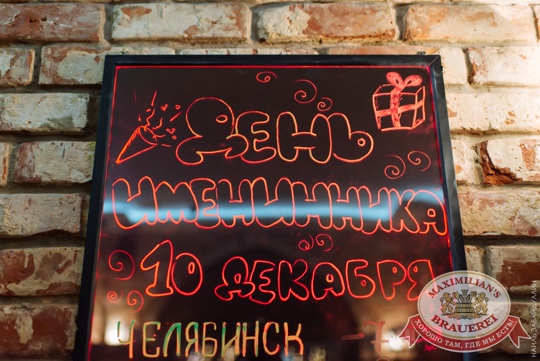 ДЕНЬ
ИМЕНИННИКА
10 ДЕКАБРЯ
ЧЕЛЯБИНСК -7
MAXIMILIAN'S
BRAUEREI
ХОРОШО ТАМ, ГДЕ МЫ ЕСТЬ!